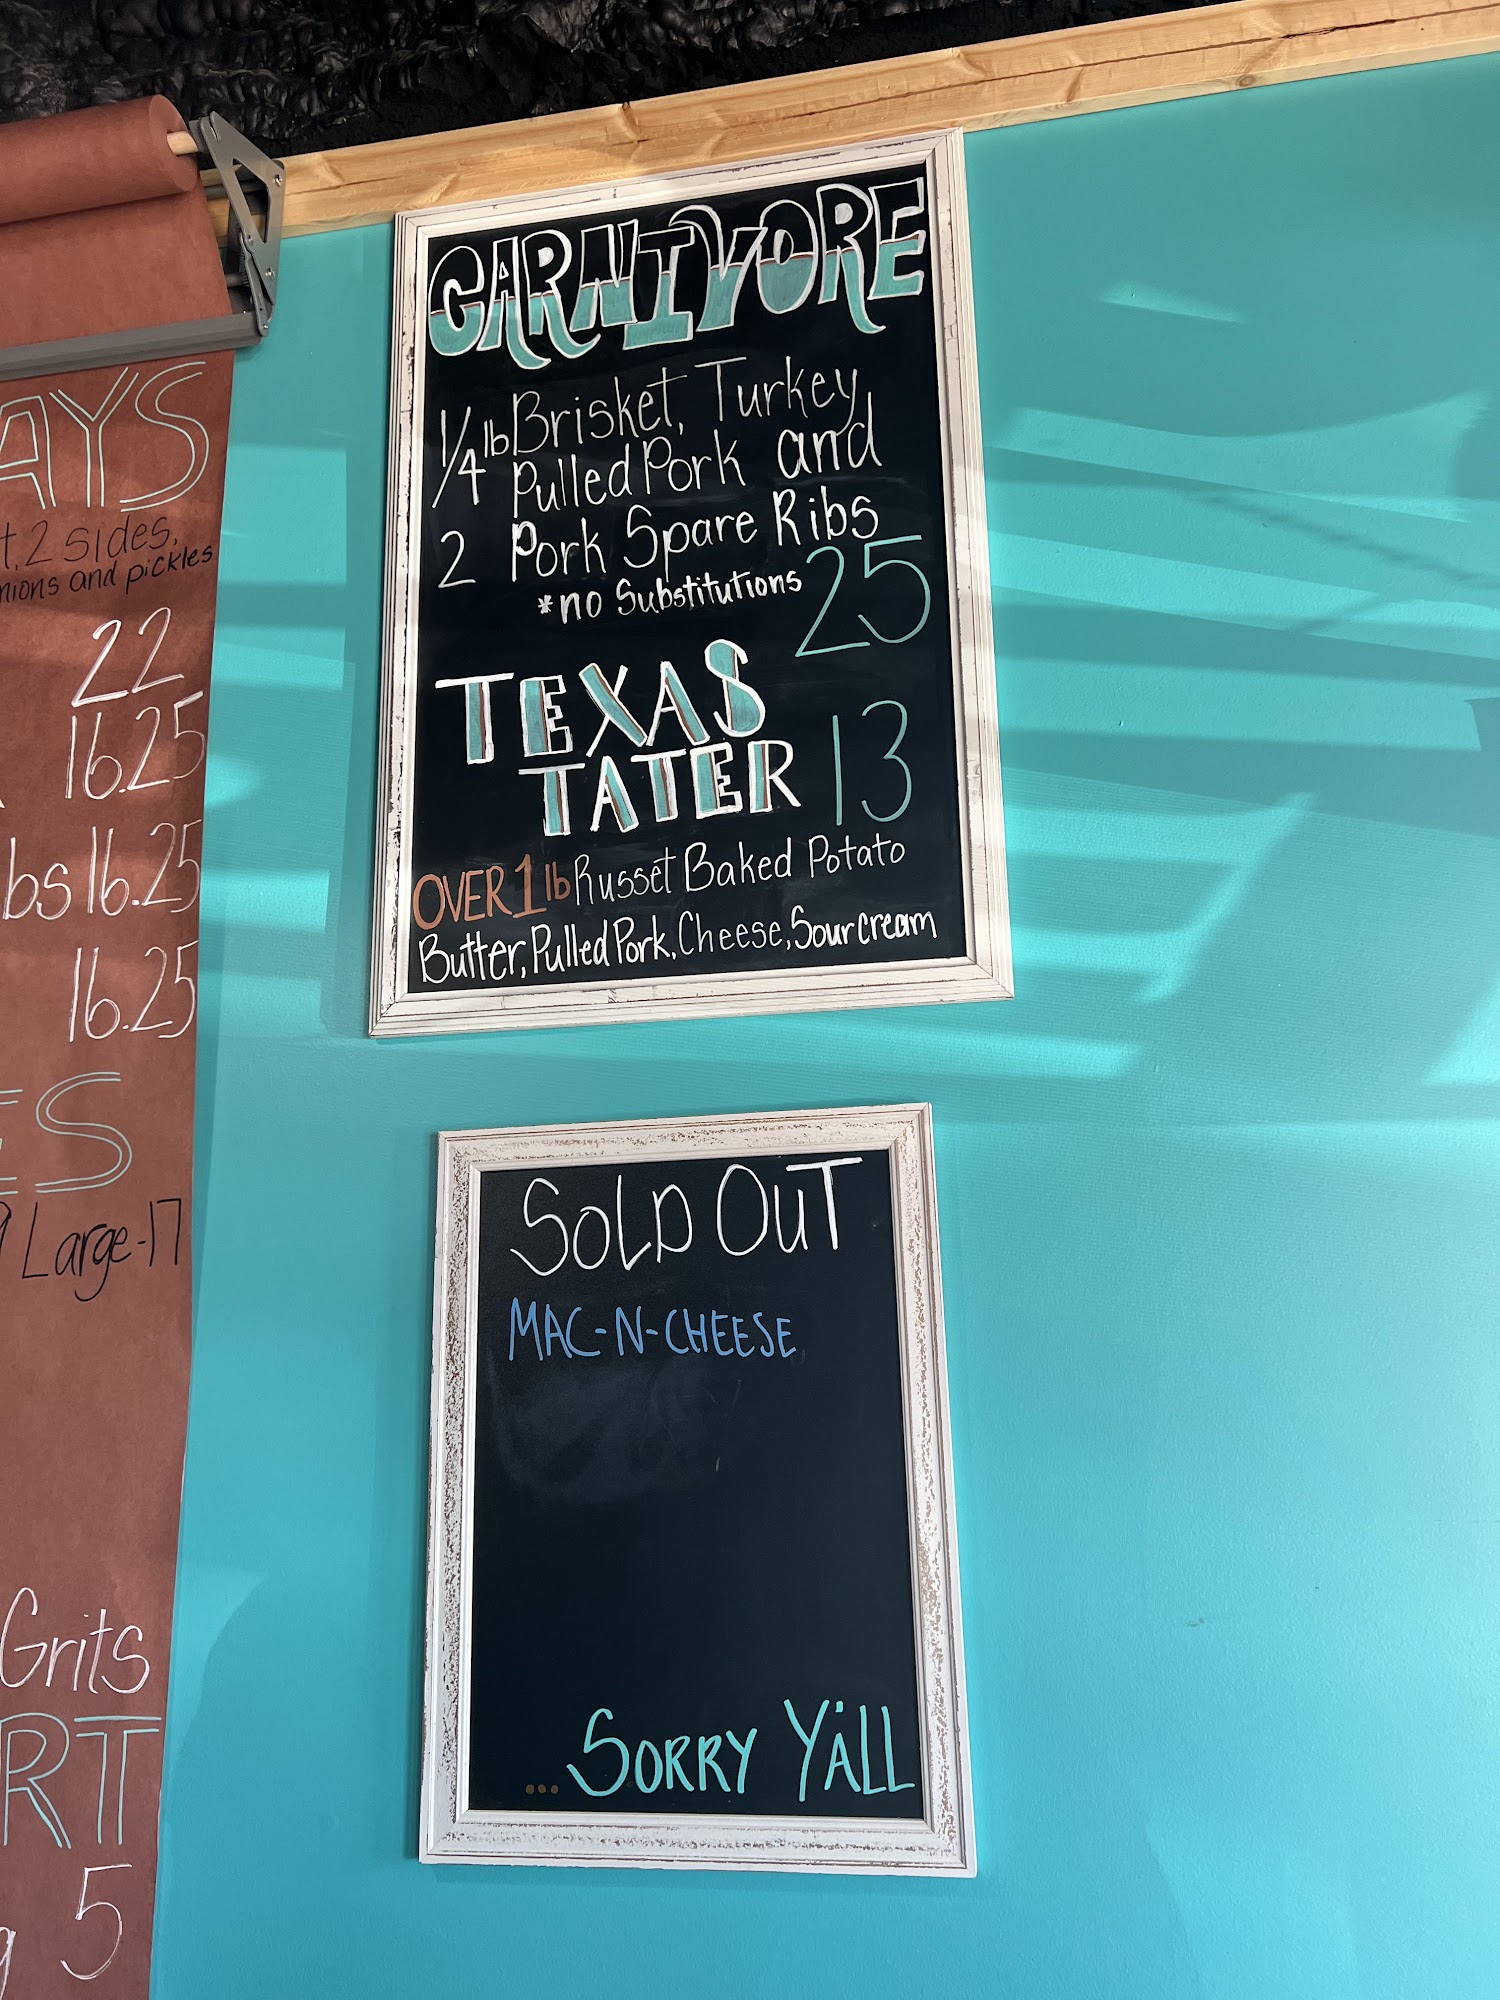 AYS
2 sides,
and pickles
22
16.25
16.25
16.25
Large-17
Grits
5
CARNIVORE
1/4 lb Brisket, Turkey,
Pulled Pork and
2 Pork Spare Ribs
*no Substitutions 25
TEXAS
TATER 13
OVER 1 lb Russet Baked Potato
Butter, Pulled Pork, Cheese, Sour cream
SOLD OUT
MAC-N-CHEESE
...SORRY Y'ALL